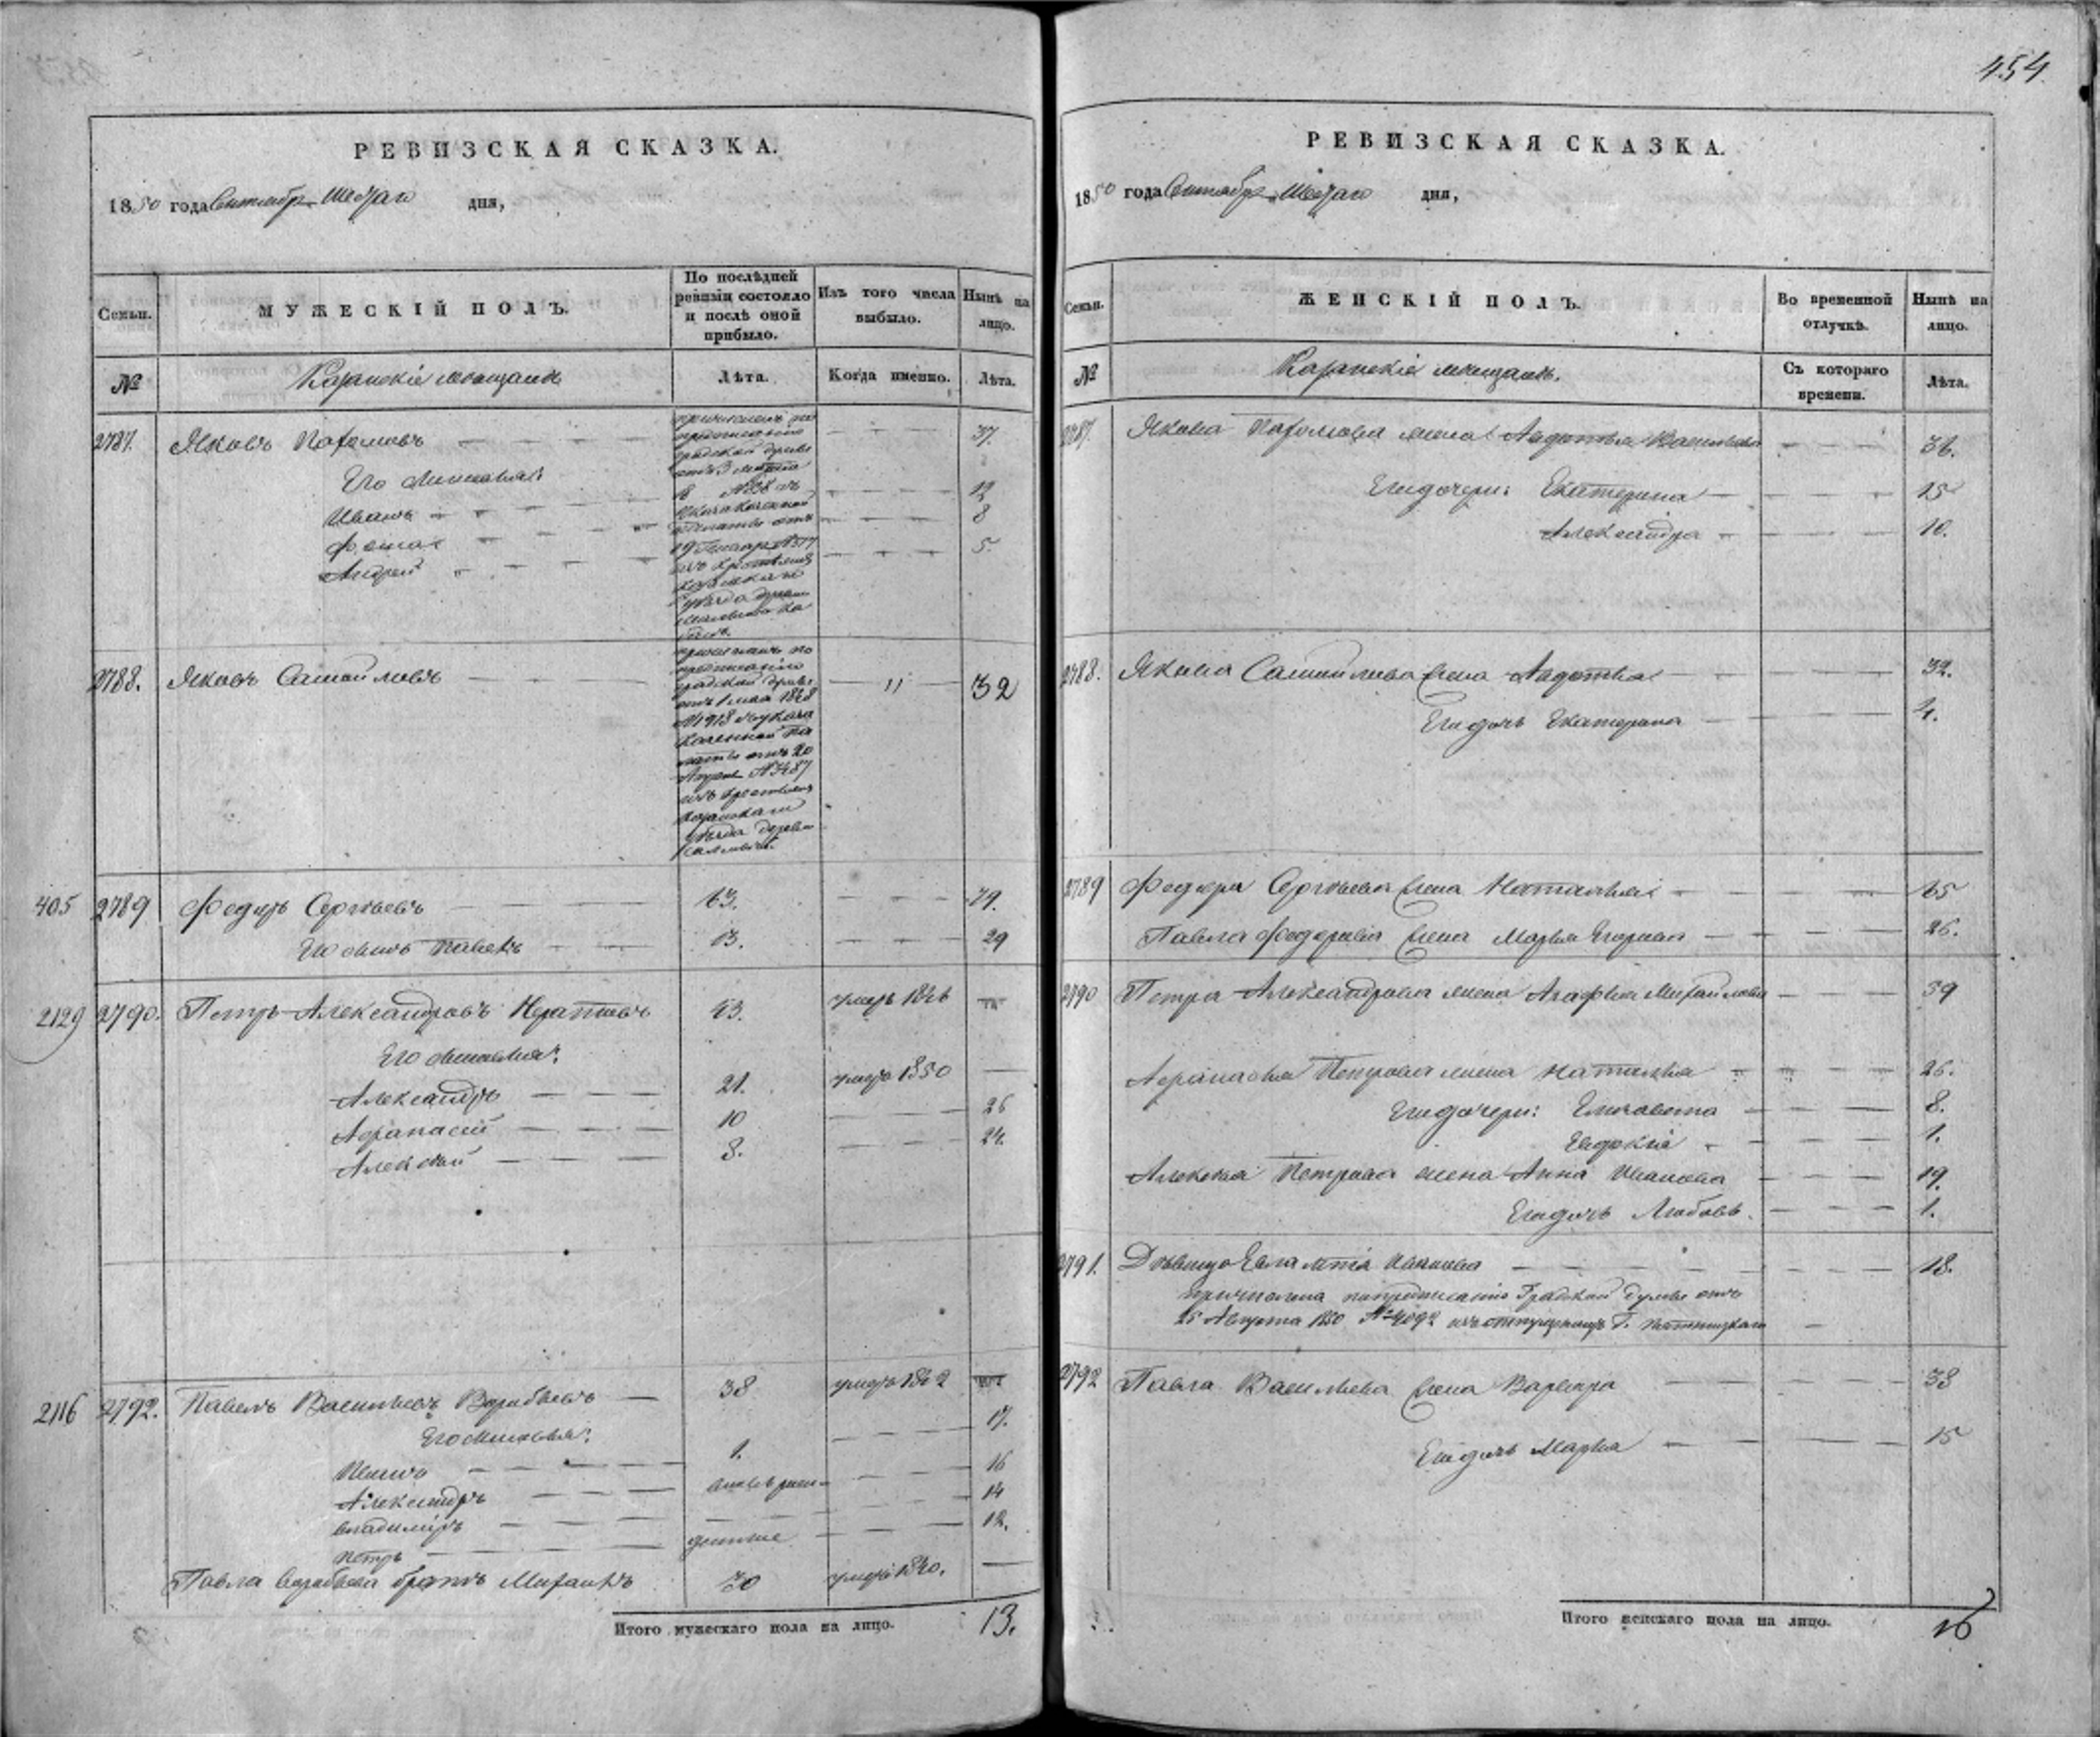 454.
РЕВИЗСКАЯ СКАЗКА.
1850 года Сентября дня,
Семьи.
МУЖЕСКІЙ ПОЛЪ.
По послѣдней ревизіи состояло и послѣ оной прибыло.
Изъ того числа выбыло.
Нынѣ на лицо.
№
Казанскіе мещане
Лѣта.
Когда именно.
Лѣта.
2787. Яковъ 37.
Его сыновья:
Иванъ 12
Фома 8
Андрей 5.
причисленъ по
предписанію
градской думы
2788. Яковъ Самойловъ " 32
причисленъ по
предписанію
градской думы
отъ 1 мая 1848
№1918 и указа
казенной па
латы отъ 20
Апреля №3487
изъ крестьянъ
казанскаго
уѣзда деревни
405 2789 Федоръ Сергѣевъ 63. 79.
Его сынъ Павелъ 13. 29
2129 2790. Петръ Александровъ 43. умеръ 1846
Его сыновья:
Александръ 21. умеръ 1850
Афанасий 10 26
Алексѣй 8. 24.
2116 2792. Павелъ Васильевъ Воробьевъ 38 умеръ 1842
Его сыновья: 17.
1.
Александръ 16
Владимиръ 14
Петръ 12.
Павла Воробьева братъ Михаилъ 30 умеръ 1840.
Итого мужескаго пола на лицо. 13.
РЕВИЗСКАЯ СКАЗКА.
1850 года Сентября дня,
Семьи.
ЖЕНСКІЙ ПОЛЪ.
Во временной отлучкѣ.
Нынѣ на лицо.
№
Казанскіе мещане.
Съ котораго времени.
Лѣта.
2787. Якова жена Авдотья Васильева 36.
Его дочери: Екатерина 15
Александра 10.
2788. Якова Самойлова жена Авдотья 32.
Его дочь Екатерина 4.
2789 Федора Сергѣева жена Наталья 65
Павла Федорова жена Марья Егорова 26.
2790 Петра Александрова жена Агафья Михайлова 59
Афанасья Петрова жена Наталья 26.
Его дочери: Елизавета 8.
Евдокія 1.
Алексѣя Петрова жена Анна Иванова 19.
Его дочь Любовь. 1.
2791. Дѣвица Евлампія Иванова 18.
причислена по предписанію Градской думы отъ
25 Августа 1850 №4092
2792 Павла Васильева жена Варвара 38
Его дочь Марья 15
Итого женскаго пола на лицо. 16